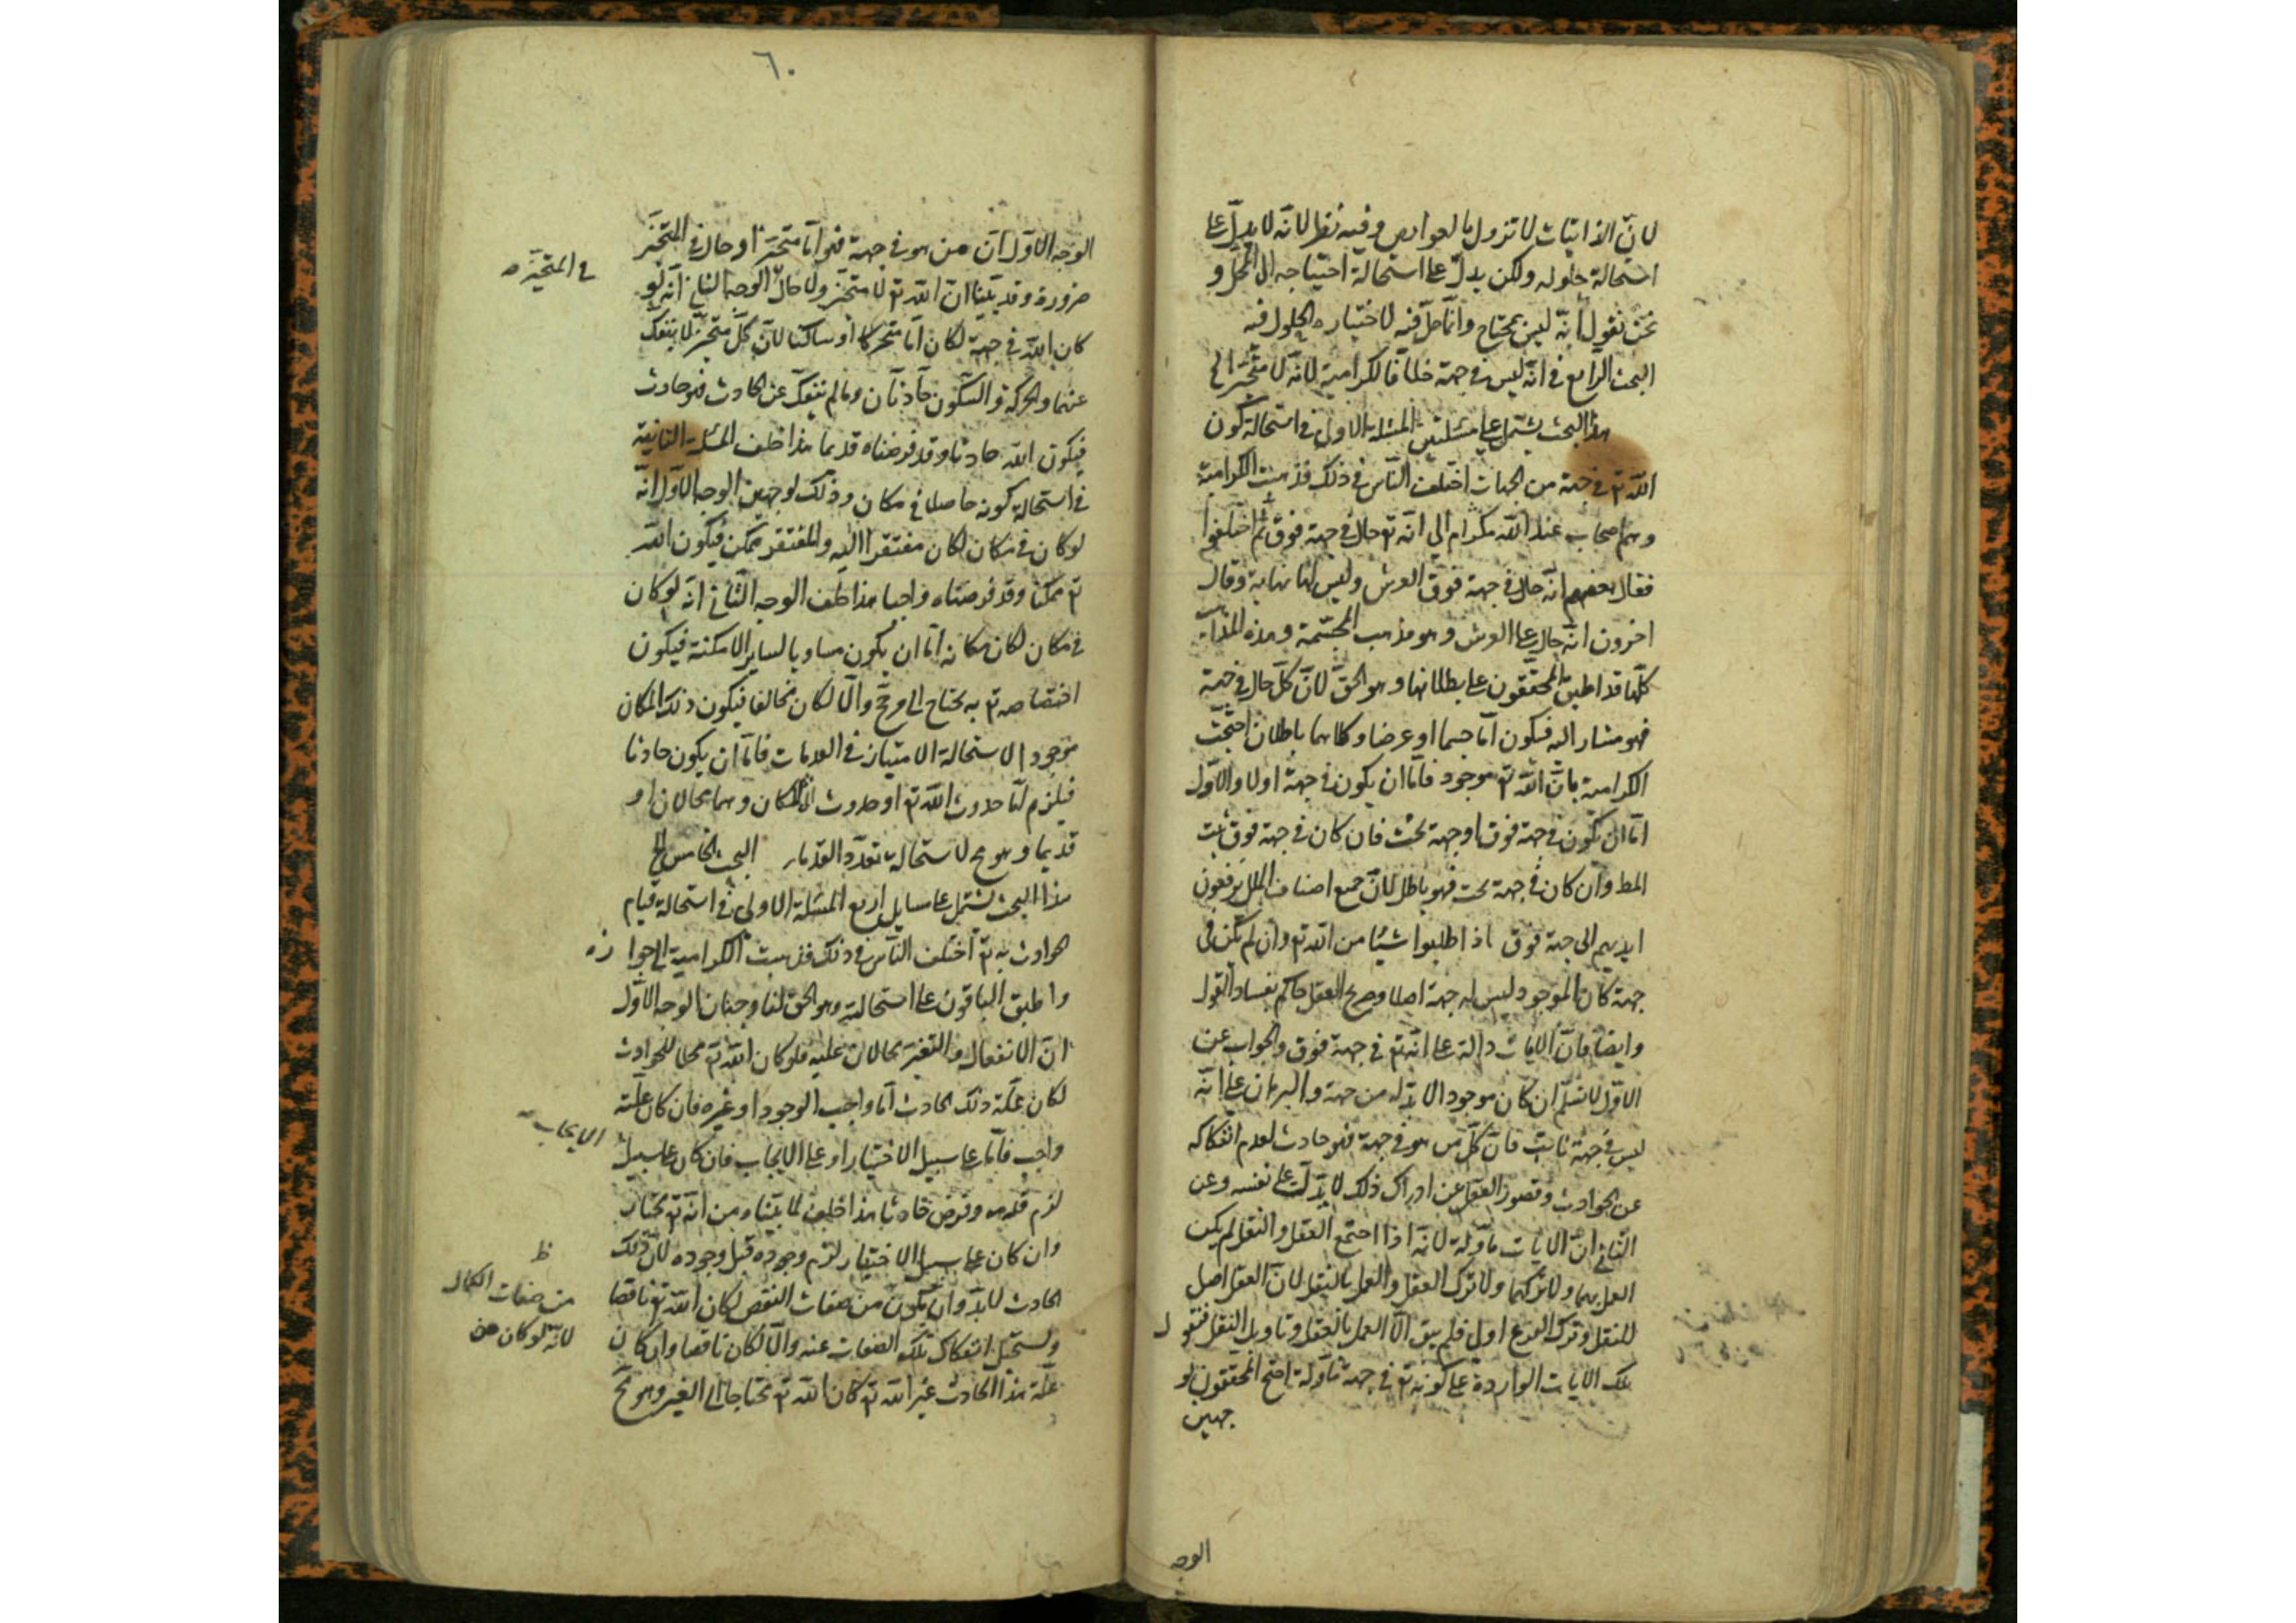 لان الذاتيات لا تزول بالعوارض وفيه نظر لانه لا يدل على
استحالة حلوله ولكن يدل على استحالة احتياجه الى المحل و
نحن نقول انه ليس بمحتاج وانما حل فيه لاختياره الحلول فيه
البحث الرابع في انه ليس في جهة خلافا لكرامية لانه لا متحيز الخ
هذا البحث يشتمل على مسئلتين المسئلة الاولى في استحالة كون
الله تع في جهة من الجهات اختلف الناس في ذلك فذهبت الكرامية
وهم اصحاب عبد الله مكرام الى انه تع حال في جهة فوق ثم اختلفوا
فقال بعضهم انه حال في جهة فوق العرش وليس لها نهاية وقال
اخرون انه حال على العرش وهو مذهب المجسمة وهذه المذاهب
كلها قد اطبق المحققون على بطلانها وهو الحق لان كل حال في جهة
فهو مشار اليه فيكون اما جسما او عرضا وكلاهما باطلان احتجت
الكرامية بان الله تع موجود فاما ان يكون في جهة اولا والاول
اما ان يكون في جهة فوق او جهة تحت فان كان في جهة فوق ثبت
المط وان كان في جهة تحت فهو باطل لان جميع اصناف الملل يرفعون
ايديهم الى جهة فوق اذا طلبوا شيئا من الله تع وان لم يكن في
جهة كان الموجود ليس له جهة اصلا وصريح العقل حاكم بفساد القول
وايضا فان الايات دالة على انه تع في جهة فوق والجواب عن
الاول لا نسلم ان كان موجود الا بد له من جهة والبرهان على انه
ليس في جهة ثابت فان كل من هو في جهة فهو حادث لعدم انفكاكه
عن الحوادث وقصور العقل عن ادراك ذلك لا يدلك على نفسه وعن
الثاني ان الايات مأولة لانه اذا اجتمع العقل والنقل لم يكن
العمل بهما ولا تركهما ولا ترك العقل والعمل بالنقل لان العقل اصل
للنقل وترك الفرع اولى فلم يبق الا العمل بالعقل وتاويل النقل فنقول
تلك الايات الواردة على كونه تع في جهة مأولة احتج المحققون لو
جهين
الوجه
٦٠
الوجه الاول ان من هو في جهة فهو اما متحيز او حال في المتحيز
في المتحيز
ضرورة وقد بينا ان الله تع لا متحيز ولا حال الوجه الثاني انه لو
كان الله في جهة لكان اما متحركا او ساكنا لان كل متحيز لا ينفك
عنهما والحركة والسكون حادثان وما لم ينفك عن الحادث فهو حادث
فيكون الله حادثا وقد فرضناه قديما هذا خلف المسئلة الثانية
في استحالة كونه حاصلا في مكان وذلك لوجهين الوجه الاول انه
لو كان في مكان لكان مفتقرا اليه والمفتقر ممكن فيكون الله
تع ممكنا وقد فرضناه واجبا هذا خلف الوجه الثاني انه لو كان
في مكان لكان مكانه اما ان يكون مساويا لساير الامكنة فيكون
اختصاصه تع به يحتاج الى مرجح والا لكان مخالفا فيكون ذلك المكان
موجود الاستحالة الامتياز في العدمات فاما ان يكون حادثا
فيلزم اما حدوث الله تع او حدوث المكان وهما محالان او
قديما وهو مح لاستحالة تعدد القدماء البحث الخامس الخ
هذا البحث يشتمل على مسايل اربع المسئلة الاولى في استحالة قيام
الحوادث به تع اختلف الناس في ذلك فذهبت الكرامية الى جوازه
واطبق الباقون على استحالته وهو الحق لنا وجهان الوجه الاول
ان الانفعال والتغير محالان عليه فلو كان الله تع محلا للحوادث
لكان علة ذلك الحادث اما واجب الوجود او غيره فان كان علته
واجب فاما على سبيل الاختيار او على الايجاب فان كان على سبيل
الايجاب
لزم قدمه وفرض حادثا هذا خلف لما بيناه من انه تع مختار
وان كان على سبيل الاختيار لزم وجوده قبل وجوده لان ذلك
الحادث لا بد وان يكون من صفات النقص لكان الله تع ناقصا
ظ
من صفات الكمال
لانه لو كان من
ويستحيل انفكاك تلك الصفات عنه والا لكان ناقصا وان كان
علة هذا الحادث غير الله تع كان الله تع محتاجا الى الغير وهو مح